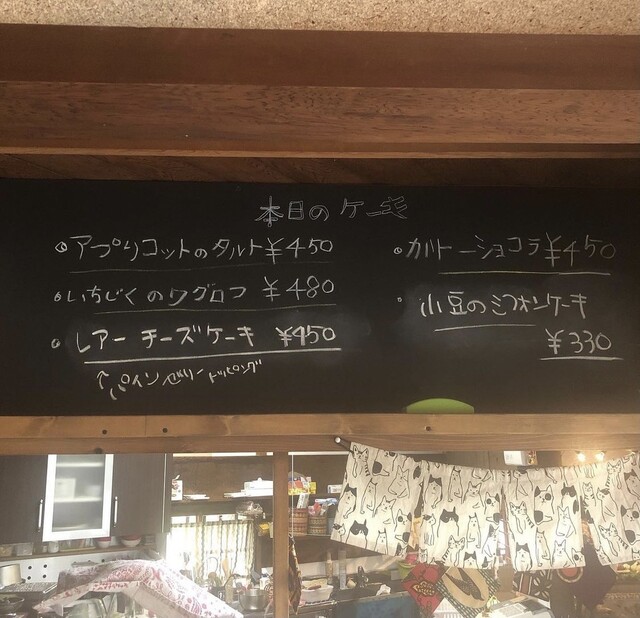 本日のケーキ
アプリコットのタルト ¥450
いちじくのクグロフ ¥480
レアーチーズケーキ ¥450
↑パインゼリートッピング
ガトーショコラ ¥450
小豆のシフォンケーキ
¥330